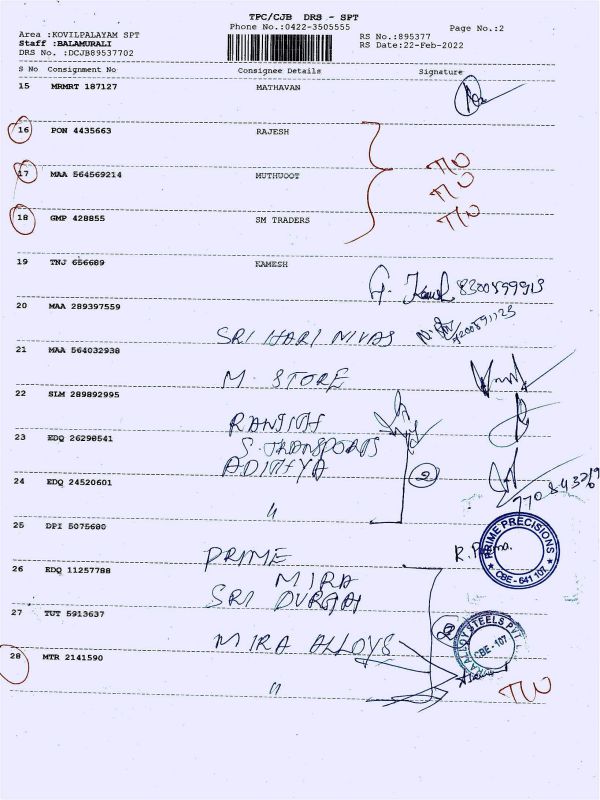 TPC/CJB DRS - SPT
Phone No.:0422-3505555
Page No.:2
Area :KOVILPALAYAM SPT
RS No.:895377
Staff :BALAMURALI
RS Date:22-Feb-2022
DRS No. :DCJB89537702
S No Consignment No Consignee Details Signature
15 MRMRT 187127 MATHAVAN
16 PON 4435663 RAJESH T/O
17 MAA 564569214 MUTHUOOT T/O
18 GMP 428855 SM TRADERS T/O
19 TNJ 656689 KAMESH
G. Kamesh 8300899913
20 MAA 289397559
SRI HARI NIVAS
21 MAA 564032938
M. STORE
22 SLM 289892995
RANJITH
23 EDQ 26290541
S. TRANSPORTS
ADITHYA
24 EDQ 24520601
2
"
25 DPI 5075680
PRIME PRECISIONS
CBE - 641 107
PRIME
26 EDQ 11257788
MIRA
SRI DURGAI
27 TUT 5913637
MIRA ALLOYS
ALLOY STEELS PVT
CBE - 107
28 MTR 2141590
"
T/O